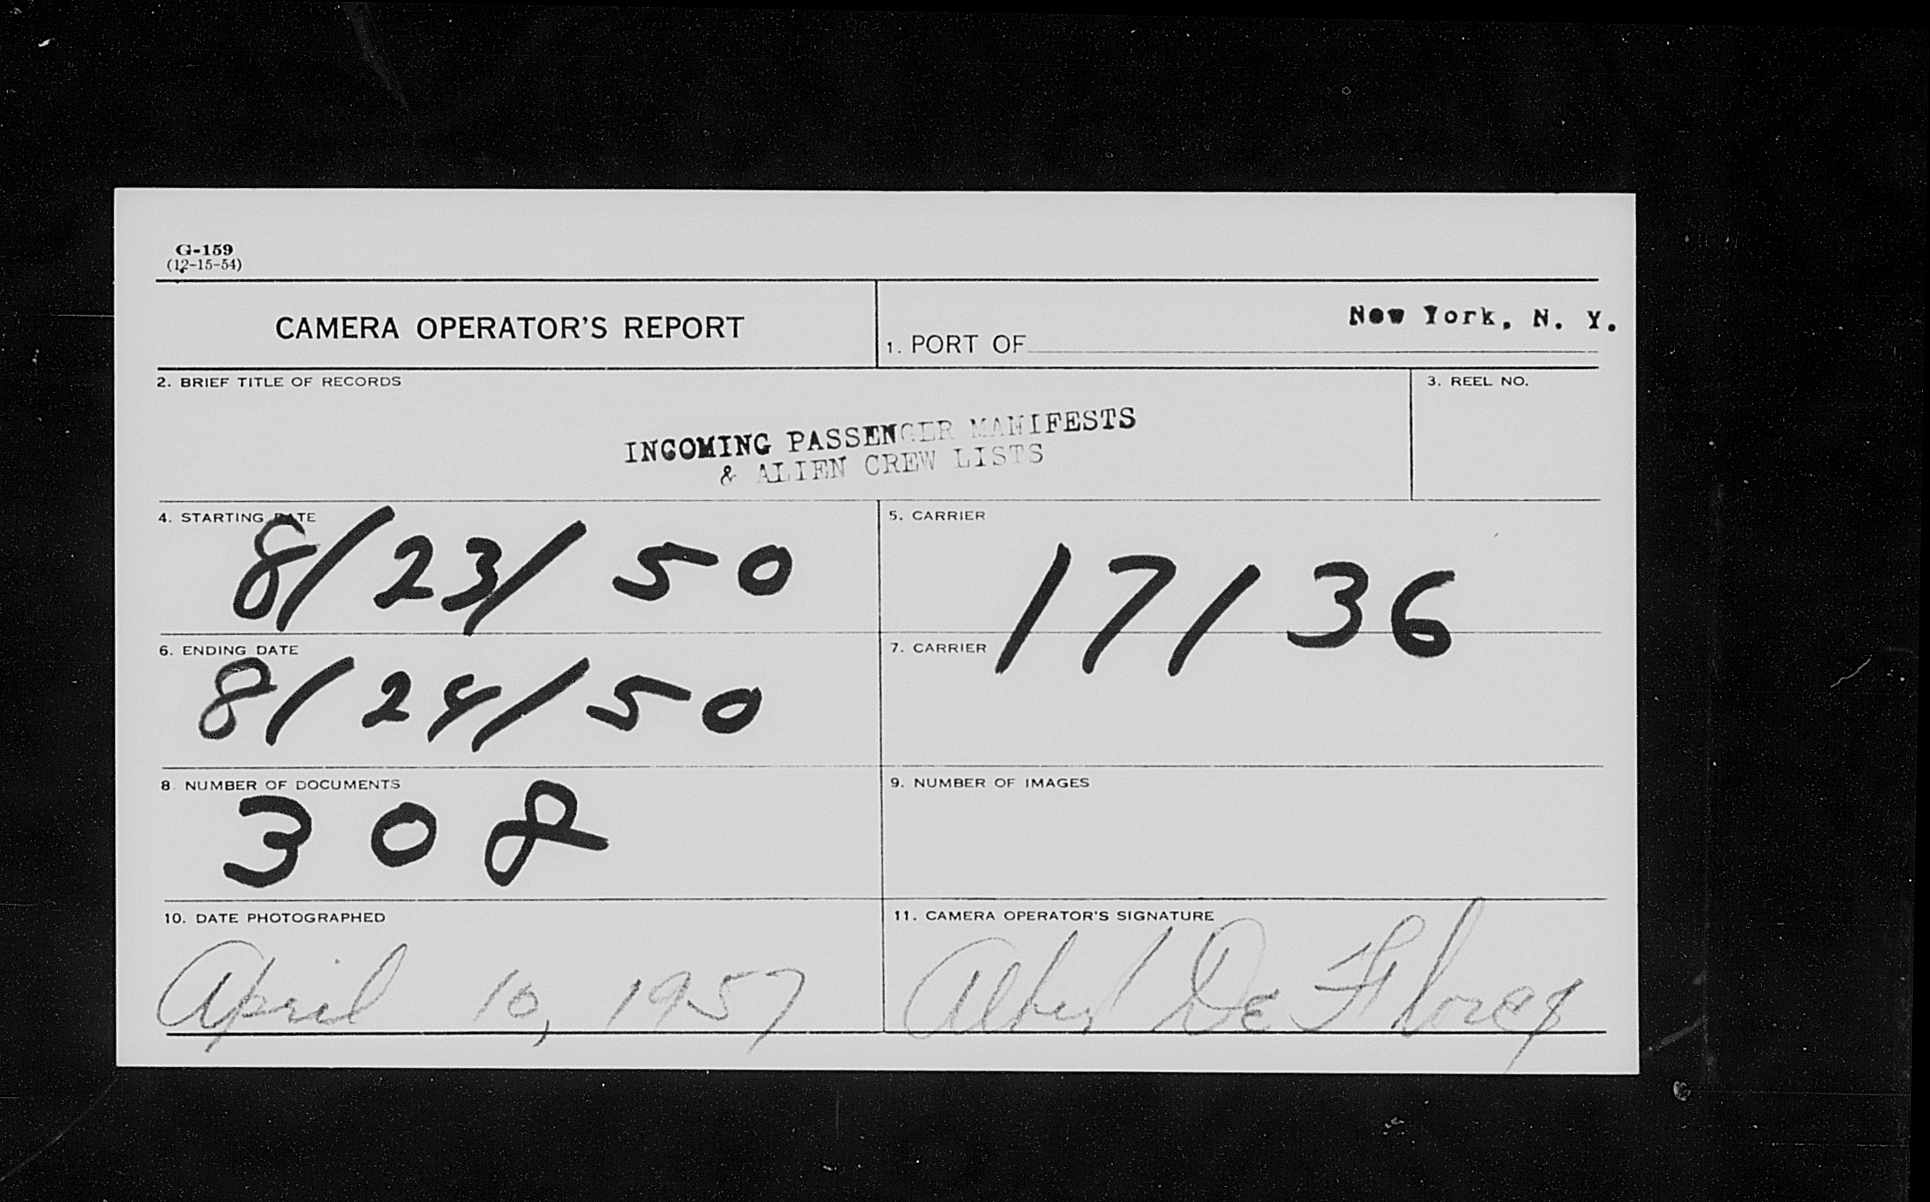 G-159
(12-15-54)
CAMERA OPERATOR'S REPORT
1. PORT OF New York, N. Y.
2. BRIEF TITLE OF RECORDS
INCOMING PASSENGER MANIFESTS
& ALIEN CREW LISTS
3. REEL NO.
4. STARTING DATE
8/23/50
5. CARRIER
17136
6. ENDING DATE
8/24/50
7. CARRIER
8. NUMBER OF DOCUMENTS
308
9. NUMBER OF IMAGES
10. DATE PHOTOGRAPHED
April 10, 1957
11. CAMERA OPERATOR'S SIGNATURE
Albert De Florez